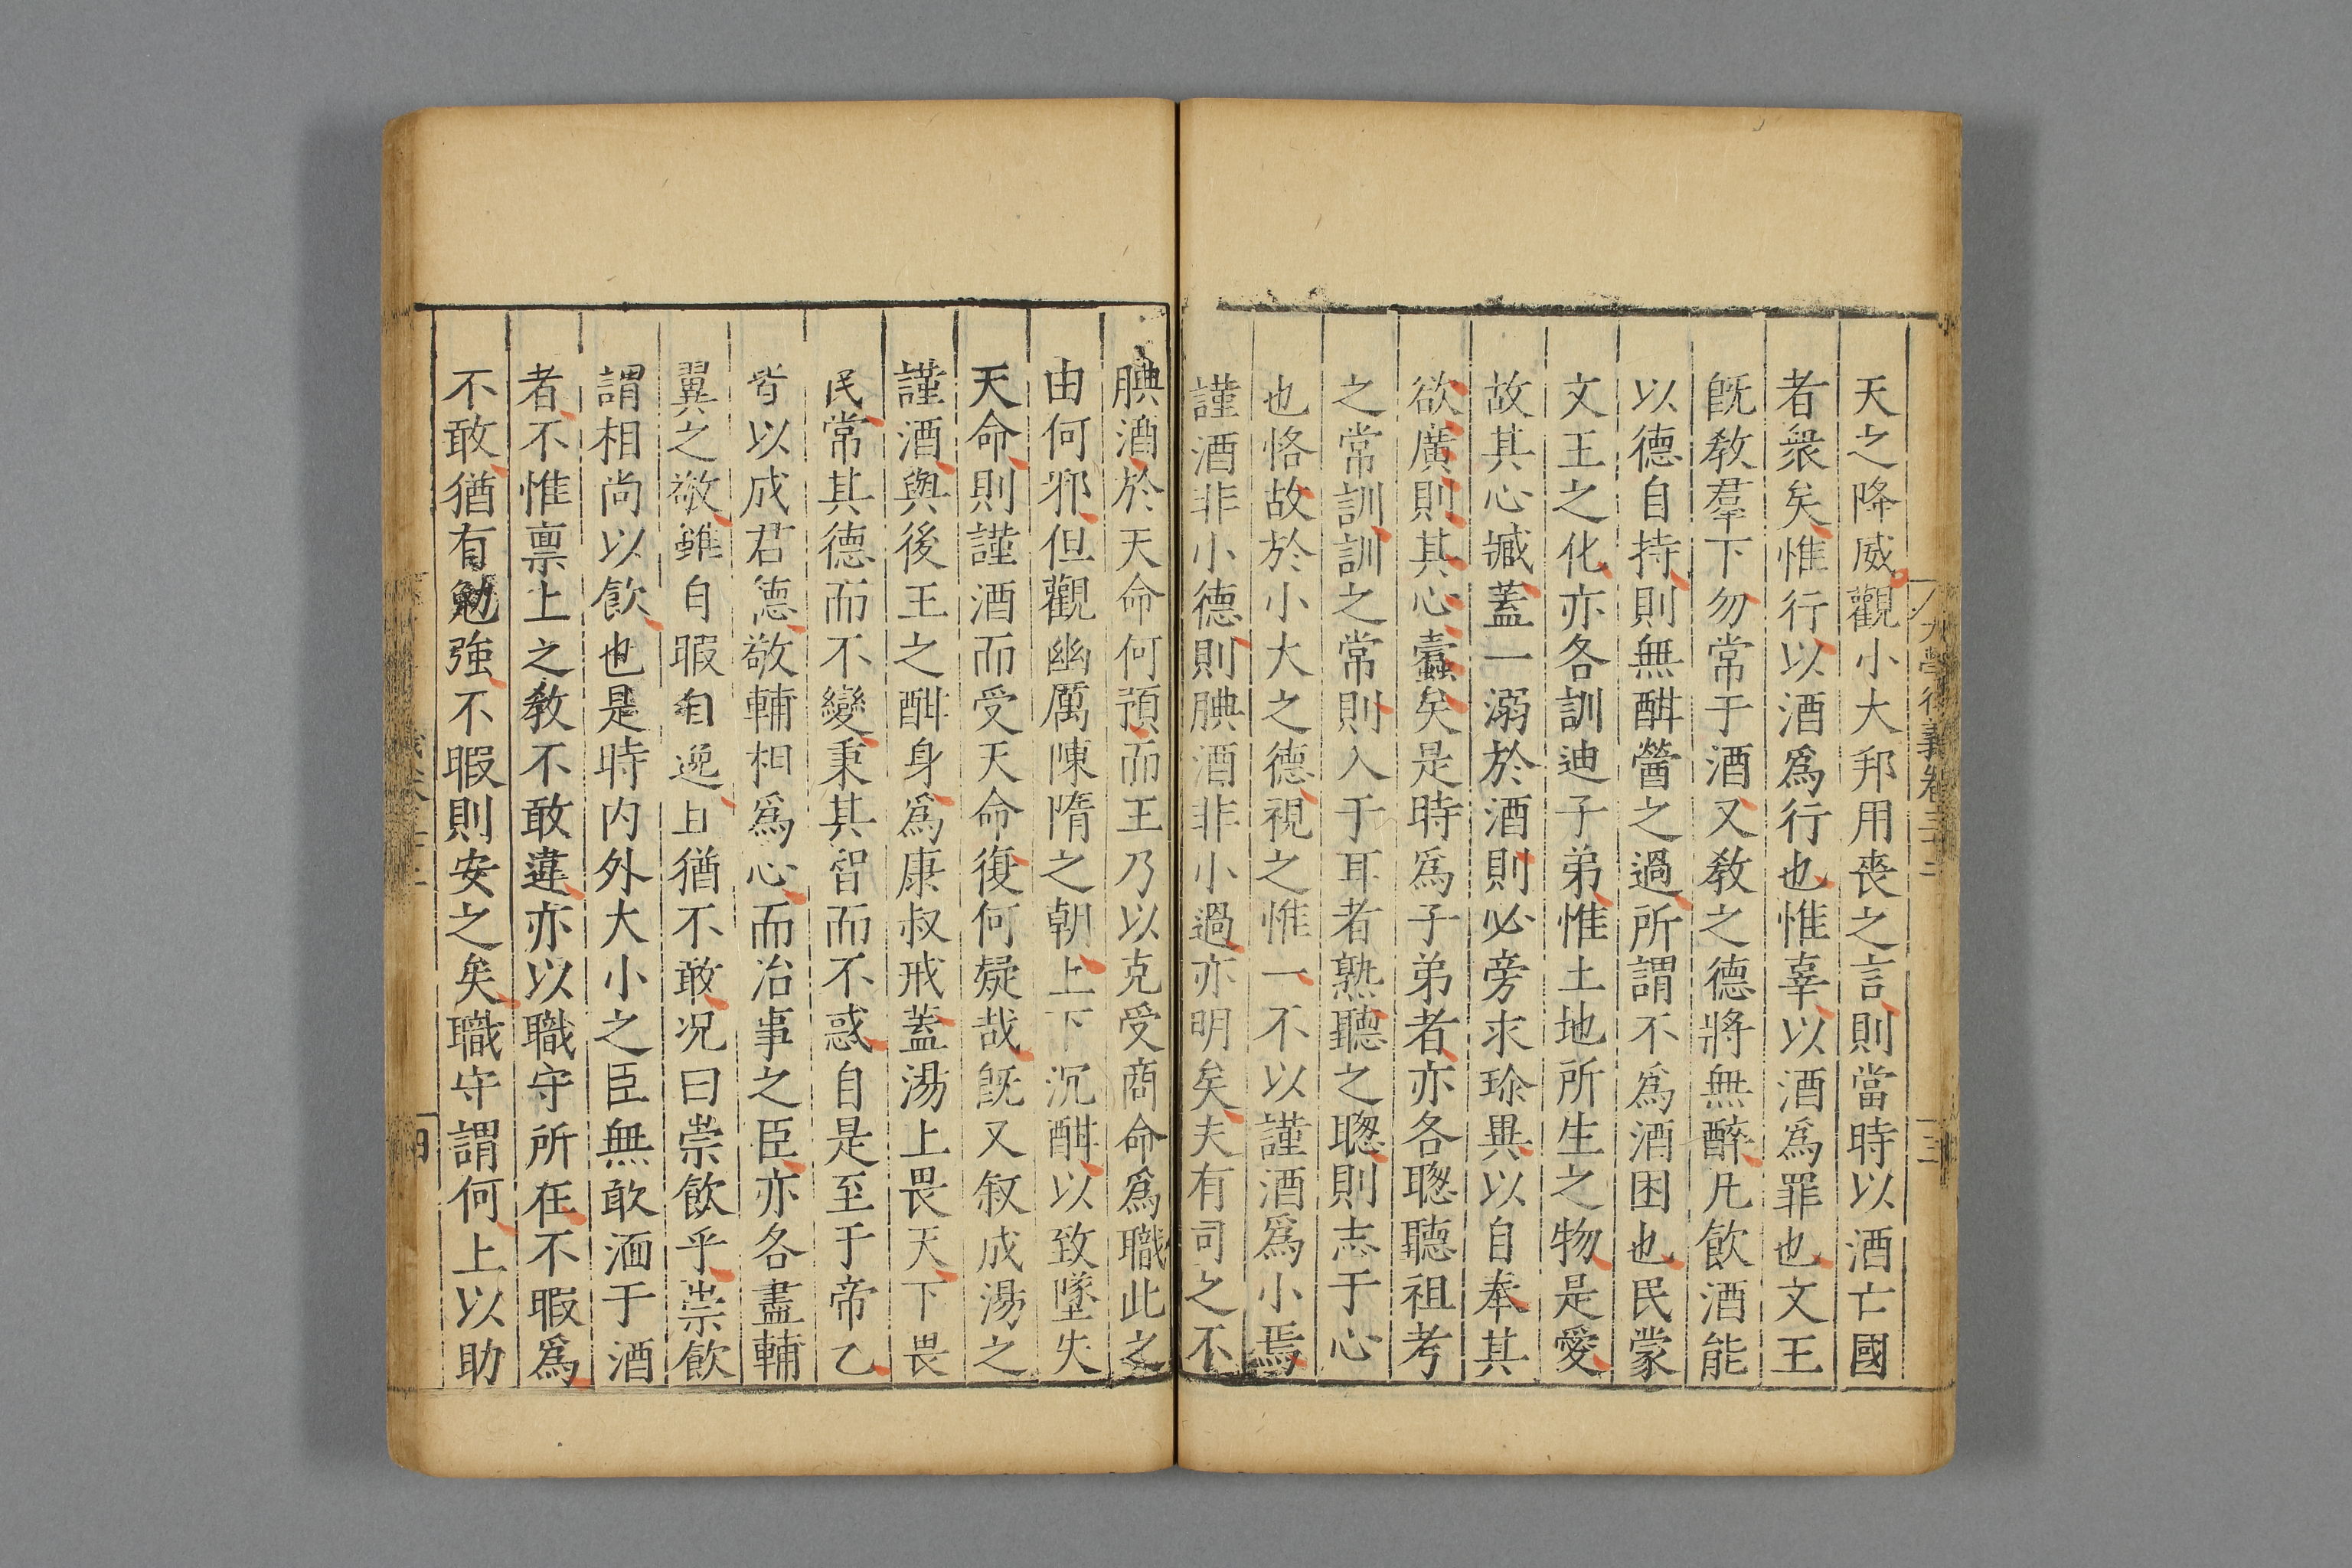 天之降威觀小大邦用喪之言則當時以酒亡國
者衆矣惟行以酒爲行也惟辜以酒爲罪也文王
旣敎羣下勿常于酒又敎之德將無醉凡飮酒能
以德自持則無酣醟之過所謂不爲酒困也民蒙
文王之化亦各訓迪子弟惟土地所生之物是愛
故其心臧蓋一溺於酒則必旁求珍異以自奉其
欲廣則其心蠧矣是時爲子弟者亦各聰聽祖考
之常訓訓之常則入于耳者熟聽之聰則志于心
也恪故於小大之德視之惟一不以謹酒爲小焉
謹酒非小德則腆酒非小過亦明矣夫有司之不
腆酒於天命何預而王乃以克受商命爲職此之
由何邪但觀幽厲陳隋之朝上下沉酣以致墜失
天命則謹酒而受天命復何疑哉旣又叙成湯之
謹酒與後王之酣身爲康叔戒蓋湯上畏天下畏
民常其德而不變秉其智而不惑自是至于帝乙
皆以成君德敬輔相爲心而治事之臣亦各盡輔
翼之敬雖自暇自逸且猶不敢况曰崇飮乎崇飮
謂相尚以飮也是時内外大小之臣無敢湎于酒
者不惟禀上之敎不敢違亦以職守所在不暇爲
不敢猶有勉強不暇則安之矣職守謂何上以助